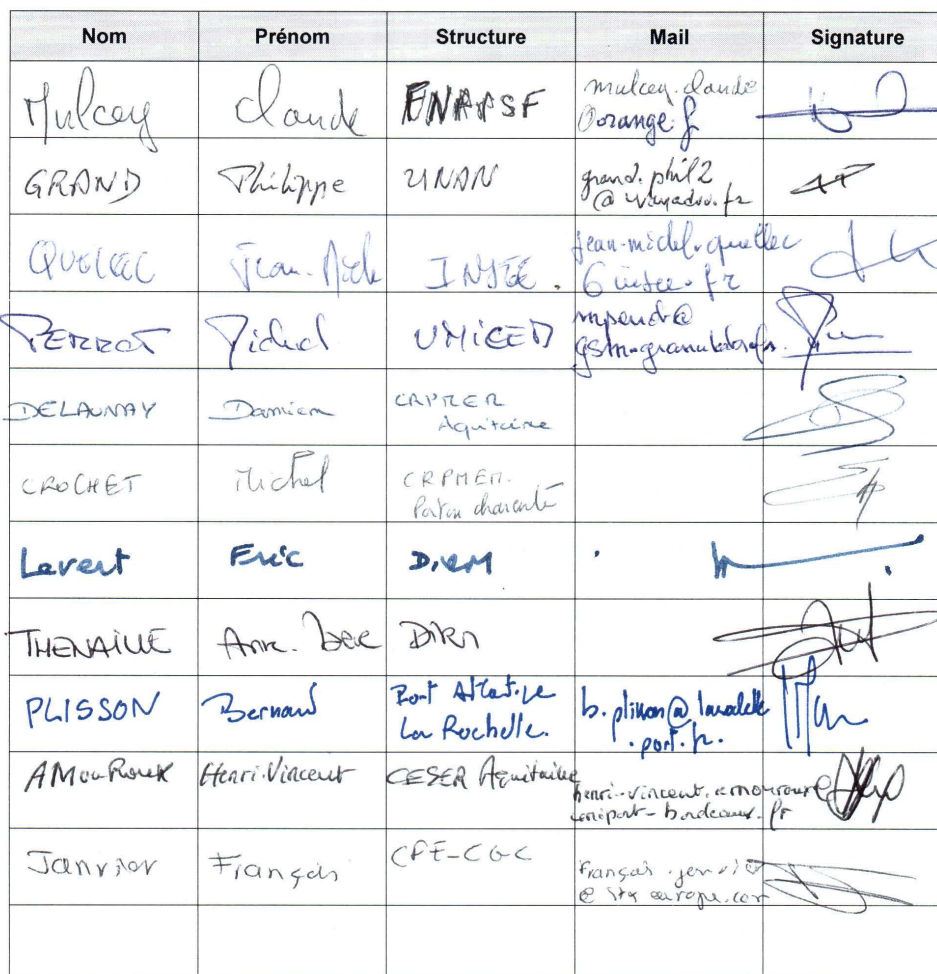 Nom Prénom Structure Mail Signature
Mulcey Claude FNAPSF mulcey.claude
@orange.f
GRAND Philippe UNAN grand.phil2
@wanadoo.fr
QUELLEC Jean-Mich INSEE. jean-michel.quellec
@insee.fr
PERROT Michel UNICEM
DELAUNAY Damien CRPMEM
Aquitaine
CROCHET Michel CRPMEM.
Poitou charente
Levert Eric DIRM
THENAILLE DIRM
PLISSON Bernard Port Atlantique
La Rochelle.
b.plisson@larochelle
.port.fr.
AMouRouX Henri-Vincent CESER Aquitaine
henri-vincent.amouroux@
-bordeaux.fr
Janvier François CFE-CGC
François.janvier
@ stx europe.com